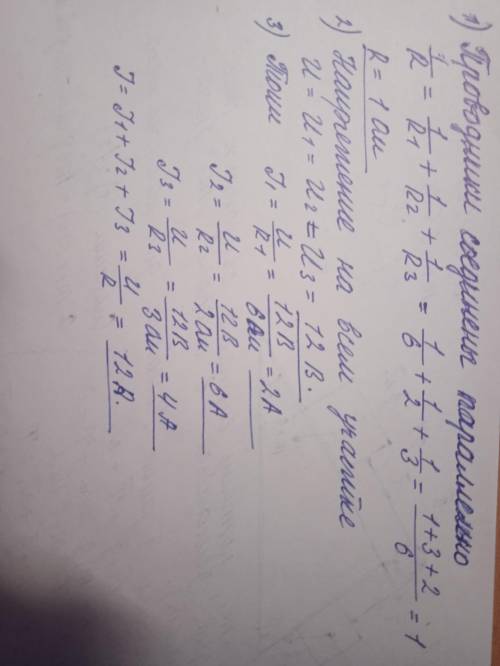 1) Проводники соединены параллельно
1/R = 1/R1 + 1/R2 + 1/R3 = 1/6 + 1/2 + 1/3 = (1+3+2)/6 = 1
R = 1 Ом
2) Напряжение на всем участке
U = U1 = U2 = U3 = 12 В.
3) Токи I1 = U/R1 = 12В/6Ом = 2А
I2 = U/R2 = 12В/2Ом = 6А
I3 = U/R3 = 12В/3Ом = 4А
I = I1 + I2 + I3 = U/R = 12А.